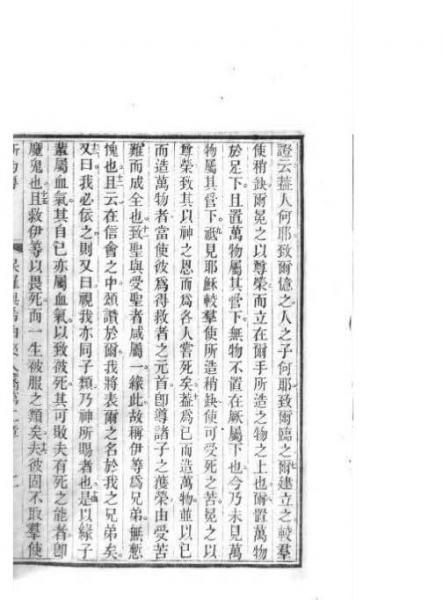 證云蓋人何耶致爾憶之人之子何耶致爾臨之爾建立之較羣
使稍缺爾冕之以尊榮而立在爾手所造之物之上也爾置萬物
於足下且置萬物屬其管下無物不置在厥屬下也今乃未見萬
物屬其管下祇見耶穌較羣使所造稍缺使可受死之苦冕之以
尊榮致其以神之恩而為各人嘗死矣蓋為已而造萬物並以已
而造萬物者當使彼為得救者之元首卽導諸子之獲榮由受苦
難而成全也致聖與受聖者咸屬一緣此故稱伊等為兄弟無慙
愧也且云在信會之中頌讚於爾我將表爾之名於我之兄弟矣
又曰我必依之則又曰視我亦同子類乃神所賜者也是以緣子
輩屬血氣其自己亦屬血氣以致彼死其可敗夫有死之能者卽
魔鬼也且救伊等以畏死而一生被服之類矣夫彼固不取羣使